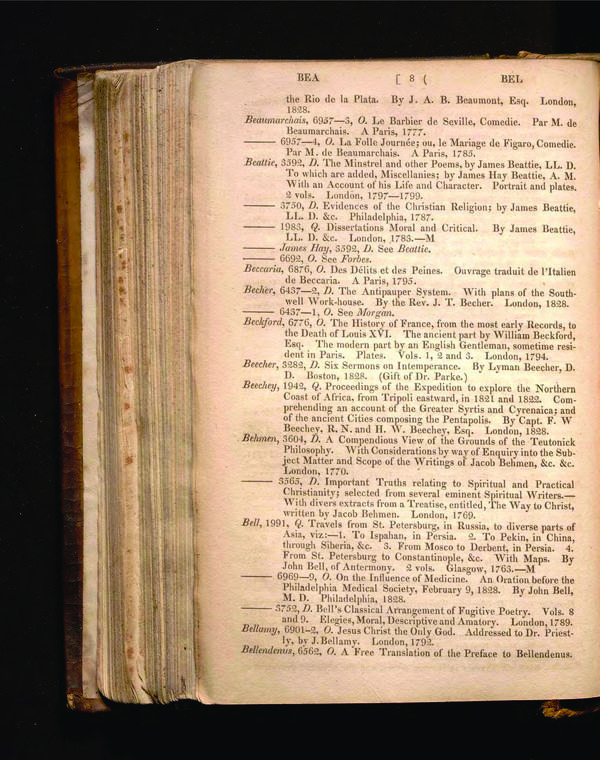 BEA [ 8 ( BEL
the Rio de la Plata. By J. A. B. Beaumont, Esq. London,
1828.
Beaumarchais, 6957—3, O. Le Barbier de Seville, Comedie. Par M. de
Beaumarchais. A Paris, 1777.
——— 6957—4, O. La Folle Journée; ou, le Mariage de Figaro, Comedie.
Par M. de Beaumarchais. A Paris, 1785.
Beattie, 3592, D. The Minstrel and other Poems, by James Beattie, LL. D.
To which are added, Miscellanies; by James Hay Beattie, A. M.
With an Account of his Life and Character. Portrait and plates.
2 vols. London, 1797—1799.
——— 3750, D. Evidences of the Christian Religion; by James Beattie,
LL. D. &c. Philadelphia, 1787.
——— 1983, Q. Dissertations Moral and Critical. By James Beattie,
LL. D. &c. London, 1783.—M
——— James Hay, 3592, D. See Beattie.
——— 6692, O. See Forbes.
Beccaria, 6876, O. Des Délits et des Peines. Ouvrage traduit de l'Italien
de Beccaria. A Paris, 1795.
Becher, 6437—2, D. The Antipauper System. With plans of the South-
well Work-house. By the Rev. J. T. Becher. London, 1828.
——— 6437—1, O. See Morgan.
Beckford, 6776, O. The History of France, from the most early Records, to
the Death of Louis XVI. The ancient part by William Beckford,
Esq. The modern part by an English Gentleman, sometime resi-
dent in Paris. Plates. Vols. 1, 2 and 3. London, 1794.
Beecher, 3282, D. Six Sermons on Intemperance. By Lyman Beecher, D.
D. Boston, 1828. (Gift of Dr. Parke.)
Beechey, 1942, Q. Proceedings of the Expedition to explore the Northern
Coast of Africa, from Tripoli eastward, in 1821 and 1822. Com-
prehending an account of the Greater Syrtis and Cyrenaica; and
of the ancient Cities composing the Pentapolis. By Capt. F. W
Beechey, R. N. and H. W. Beechey, Esq. London, 1828.
Behmen, 3604, D. A Compendious View of the Grounds of the Teutonick
Philosophy. With Considerations by way of Enquiry into the Sub-
ject Matter and Scope of the Writings of Jacob Behmen, &c. &c.
London, 1770.
——— 3565, D. Important Truths relating to Spiritual and Practical
Christianity; selected from several eminent Spiritual Writers.—
With divers extracts from a Treatise, entitled, The Way to Christ,
written by Jacob Behmen. London, 1769.
Bell, 1991, Q. Travels from St. Petersburg, in Russia, to diverse parts of
Asia, viz:—1. To Ispahan, in Persia. 2. To Pekin, in China,
through Siberia, &c. 3. From Mosco to Derbent, in Persia. 4.
From St. Petersburg to Constantinople, &c. With Maps. By
John Bell, of Antermony. 2 vols. Glasgow, 1763.—M
——— 6969—9, O. On the Influence of Medicine. An Oration before the
Philadelphia Medical Society, February 9, 1828. By John Bell,
M. D. Philadelphia, 1828.
——— 3752, D. Bell's Classical Arrangement of Fugitive Poetry. Vols. 8
and 9. Elegies, Moral, Descriptive and Amatory. London, 1789.
Bellamy, 6901-2, O. Jesus Christ the Only God. Addressed to Dr. Priest-
ly, by J. Bellamy. London, 1792.
Bellendenus, 6562, O. A Free Translation of the Preface to Bellendenus.